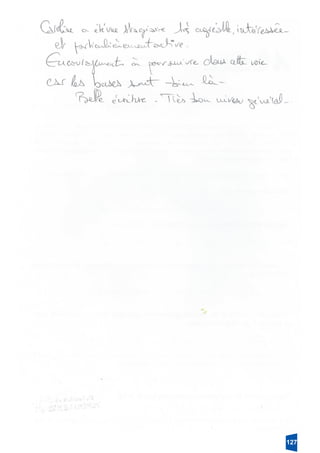 Caroline a été une stagiaire très agréable, intéressée
et particulièrement active.
Encouragements à poursuivre dans cette voie
car les bases sont bien là -
Belle écriture. Très bon niveau général -
127